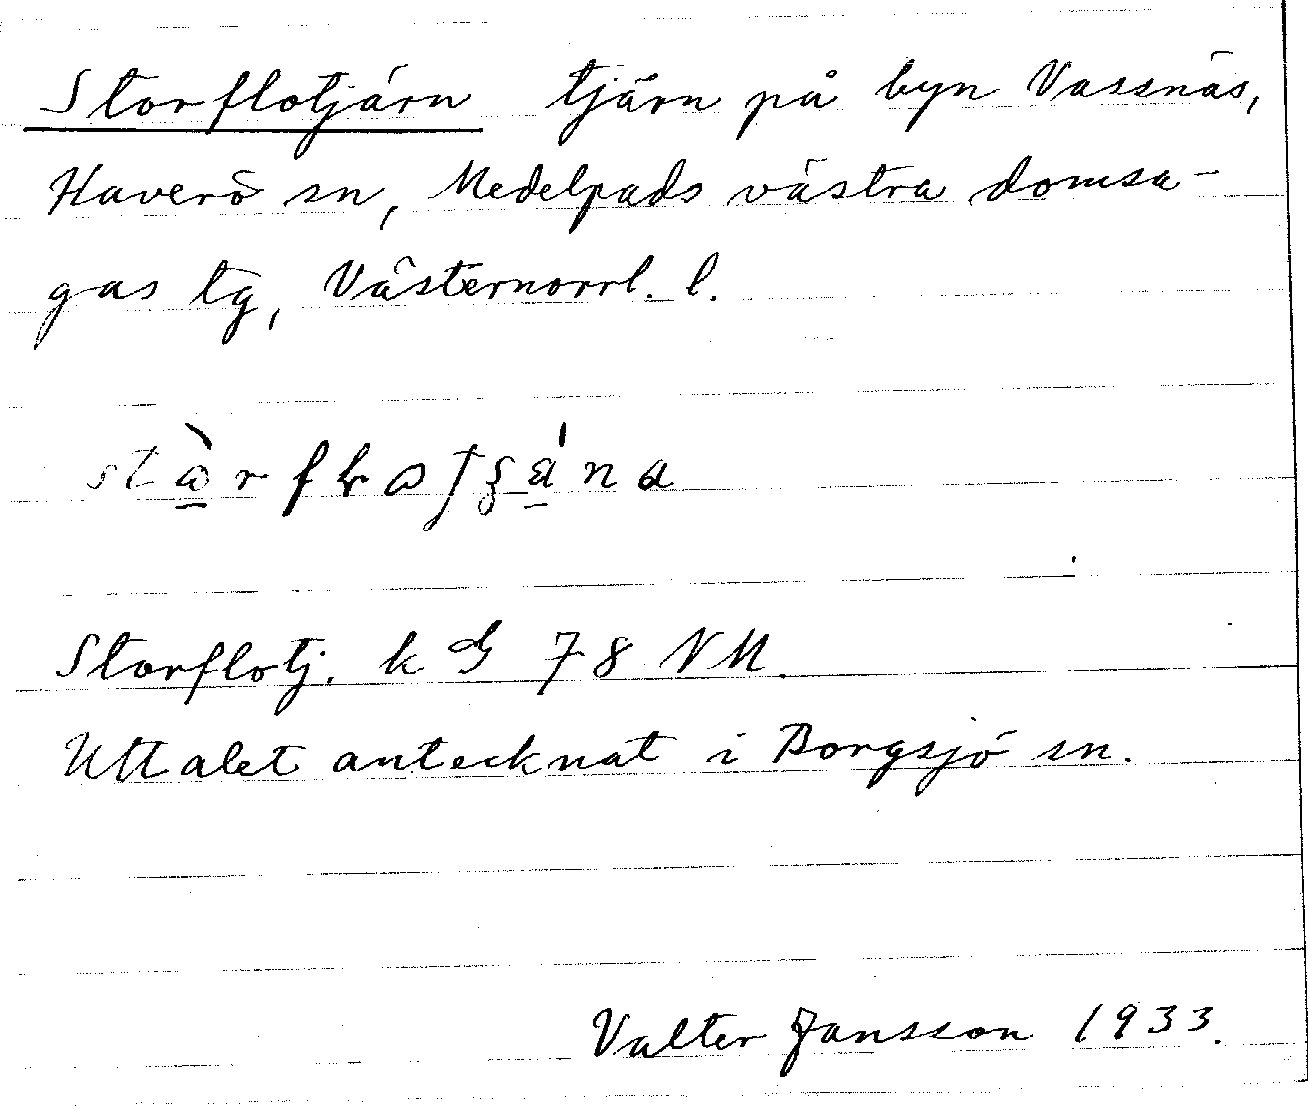 Storflotjärn tjärn på byn Vassnäs,
Haverö sn, Medelpads västra domsa-
gas tg, Västernorrl. l.
Storflotj. k G 78 NM.
Uttalet antecknat i Borgsjö sn.
Valter Jansson 1933.